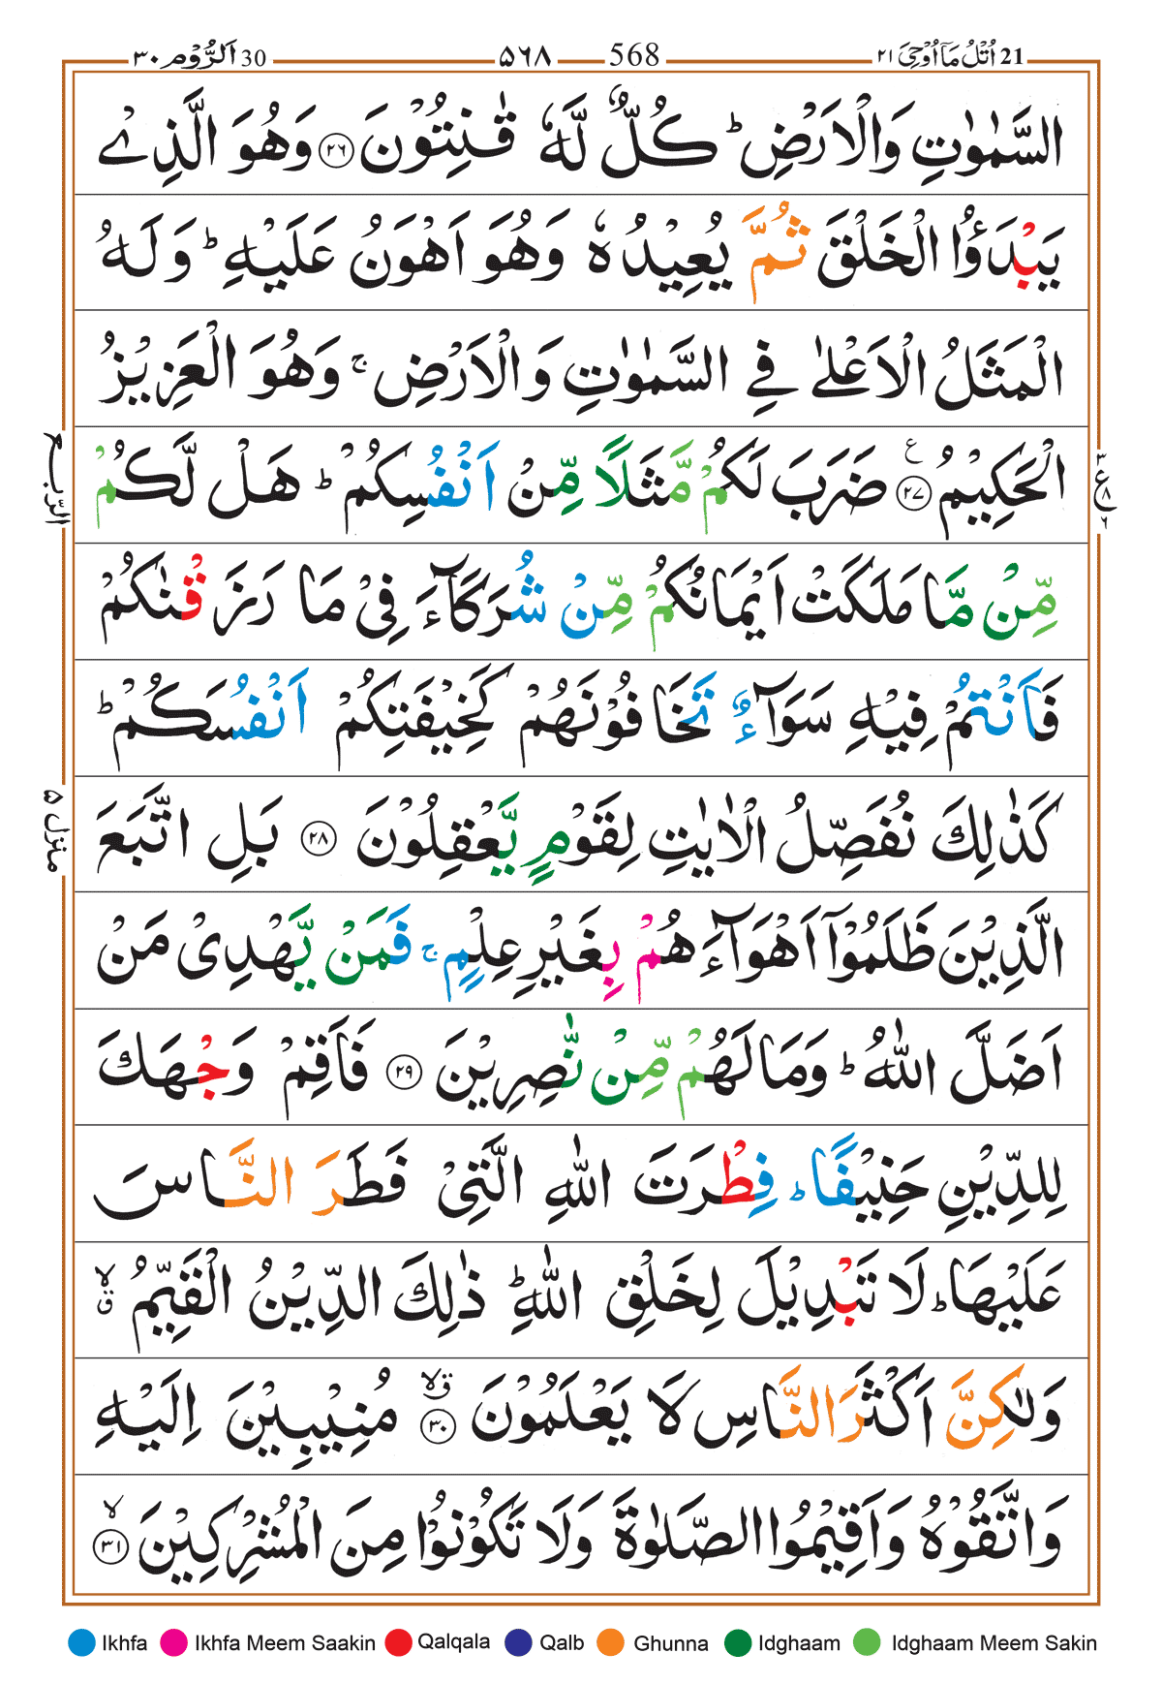 30 اَلرُّوْم ٣٠ ۵٦٨ 568 اُتْلُ مَآ اُوْحِيَ ٢١ 21
السَّمٰوٰتِ وَالْاَرْضِ ؕ كُلٌّ لَّهٗ قٰنِتُوْنَ ﴿٢٦﴾ وَهُوَ الَّذِیْ
یَبْدَؤُا الْخَلْقَ ثُمَّ یُعِیْدُهٗ وَهُوَ اَهْوَنُ عَلَیْهِ ؕ وَلَهُ
الْمَثَلُ الْاَعْلٰی فِی السَّمٰوٰتِ وَالْاَرْضِ ۚ وَهُوَ الْعَزِیْزُ
الْحَكِیْمُ ﴿٢٧﴾ ع ضَرَبَ لَكُمْ مَّثَلًا مِّنْ اَنْفُسِكُمْ ؕ هَلْ لَّكُمْ
الرّبع
٣ ع ٨ ٦
مِّنْ مَّا مَلَكَتْ اَیْمَانُكُمْ مِّنْ شُرَكَآءَ فِیْ مَا رَزَقْنٰكُمْ
فَاَنْتُمْ فِیْهِ سَوَآءٌ تَخَافُوْنَهُمْ كَخِیْفَتِكُمْ اَنْفُسَكُمْ ؕ
كَذٰلِكَ نُفَصِّلُ الْاٰیٰتِ لِقَوْمٍ یَّعْقِلُوْنَ ﴿٢٨﴾ بَلِ اتَّبَعَ
منزل ۵
الَّذِیْنَ ظَلَمُوْۤا اَهْوَآءَهُمْ بِغَیْرِ عِلْمٍ ۚ فَمَنْ یَّهْدِیْ مَنْ
اَضَلَّ اللّٰهُ ؕ وَمَا لَهُمْ مِّنْ نّٰصِرِیْنَ ﴿٢٩﴾ فَاَقِمْ وَجْهَكَ
لِلدِّیْنِ حَنِیْفًا ؕ فِطْرَتَ اللّٰهِ الَّتِیْ فَطَرَ النَّاسَ
عَلَیْهَا ؕ لَا تَبْدِیْلَ لِخَلْقِ اللّٰهِ ؕ ذٰلِكَ الدِّیْنُ الْقَیِّمُ ۙۗ
وَلٰكِنَّ اَكْثَرَ النَّاسِ لَا یَعْلَمُوْنَ ﴿٣٠﴾ ۗۙ مُنِیْبِیْنَ اِلَیْهِ
وَاتَّقُوْهُ وَاَقِیْمُوا الصَّلٰوةَ وَلَا تَكُوْنُوْا مِنَ الْمُشْرِكِیْنَ ﴿٣١﴾ ۙ
Ikhfa Ikhfa Meem Saakin Qalqala Qalb Ghunna Idghaam Idghaam Meem Sakin